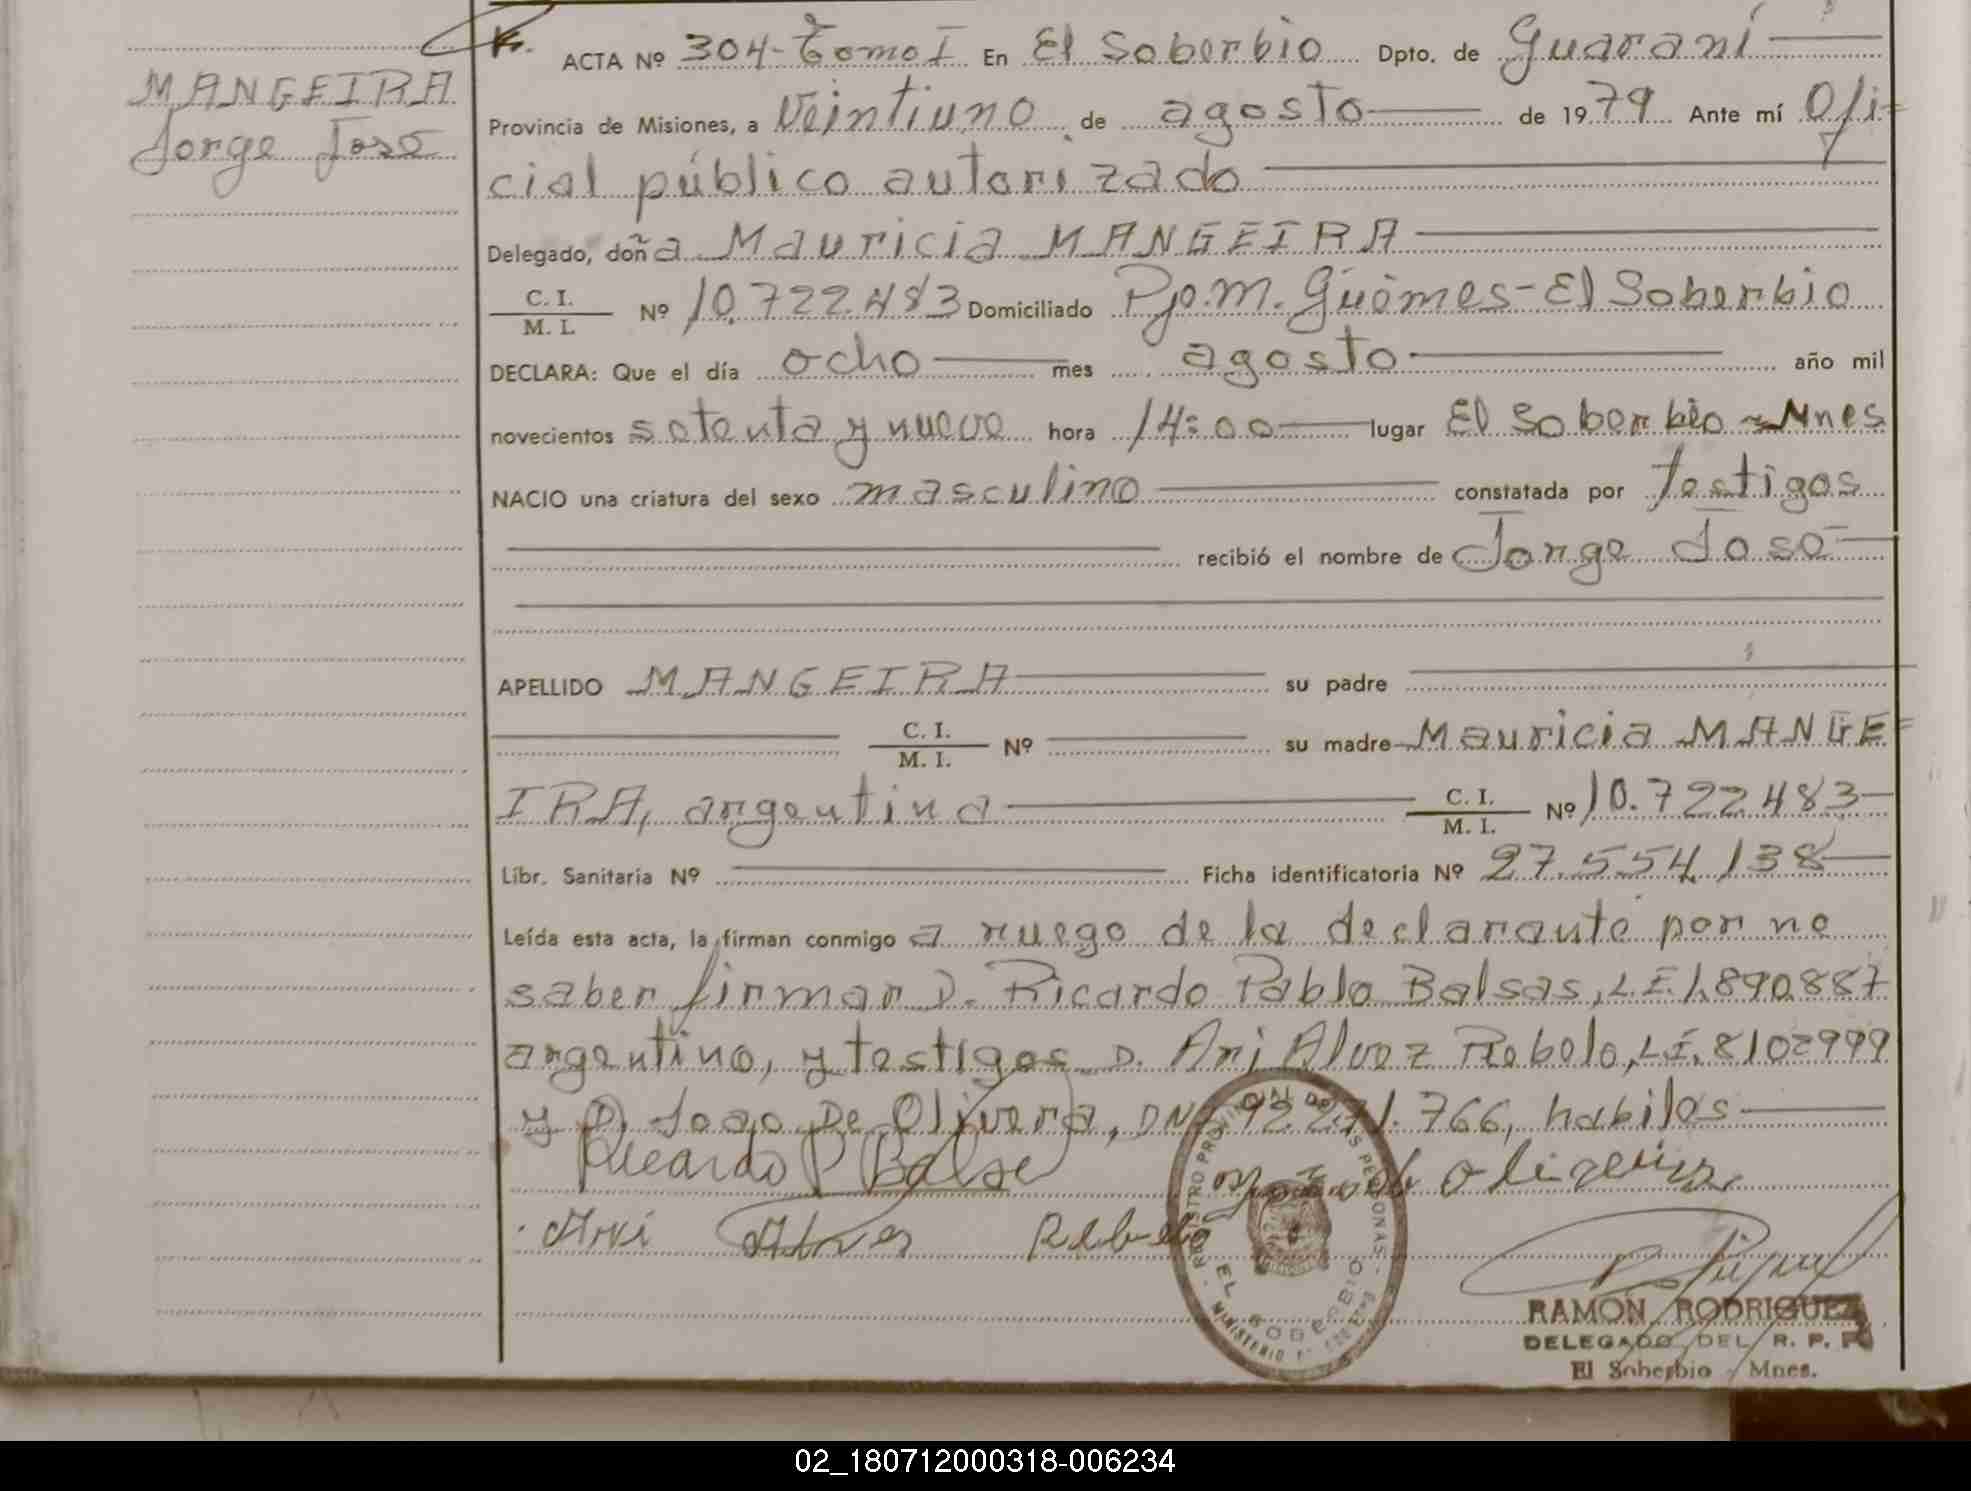 MANGEIRA
Jorge José
ACTA Nº 304-Tomo I En El Soberbio Dpto. de Guaraní
Provincia de Misiones, a Veintiuno de agosto de 1979 Ante mí Ofi=
cial público autorizado
Delegado, doña Mauricia MANGEIRA
C. I. / M. I. Nº 10.722.483 Domiciliado Pje. M. Güemes - El Soberbio
DECLARA: Que el día ocho mes agosto año mil
novecientos setenta y nueve hora 14:00 lugar El Soberbio - Mnes
NACIO una criatura del sexo masculino constatada por testigos
recibió el nombre de Jorge José
APELLIDO MANGEIRA su padre
C. I. / M. I. Nº su madre Mauricia MANGE=
IRA, argentina C. I. / M. I. Nº 10.722.483
Libr. Sanitaria Nº Ficha identificatoria Nº 27.554.138
Leída esta acta, la firman conmigo a ruego de la declarante por no
saber firmar D. Ricardo Pablo Balsas, L.E. 1.890.887
argentino, y testigos D. Ari Alvez Rebelo, L.E. 8102999
y D. Joao De Olivera, DNI 92.271.766, habiles
Ricardo P Balsa
Ari Alves Rebelo
REGISTRO PROVINCIAL DE LAS PERSONAS
EL SOBERBIO
RAMÓN RODRIGUEZ
DELEGADO DEL R. P. P.
El Soberbio - Mnes.
02_180712000318-006234